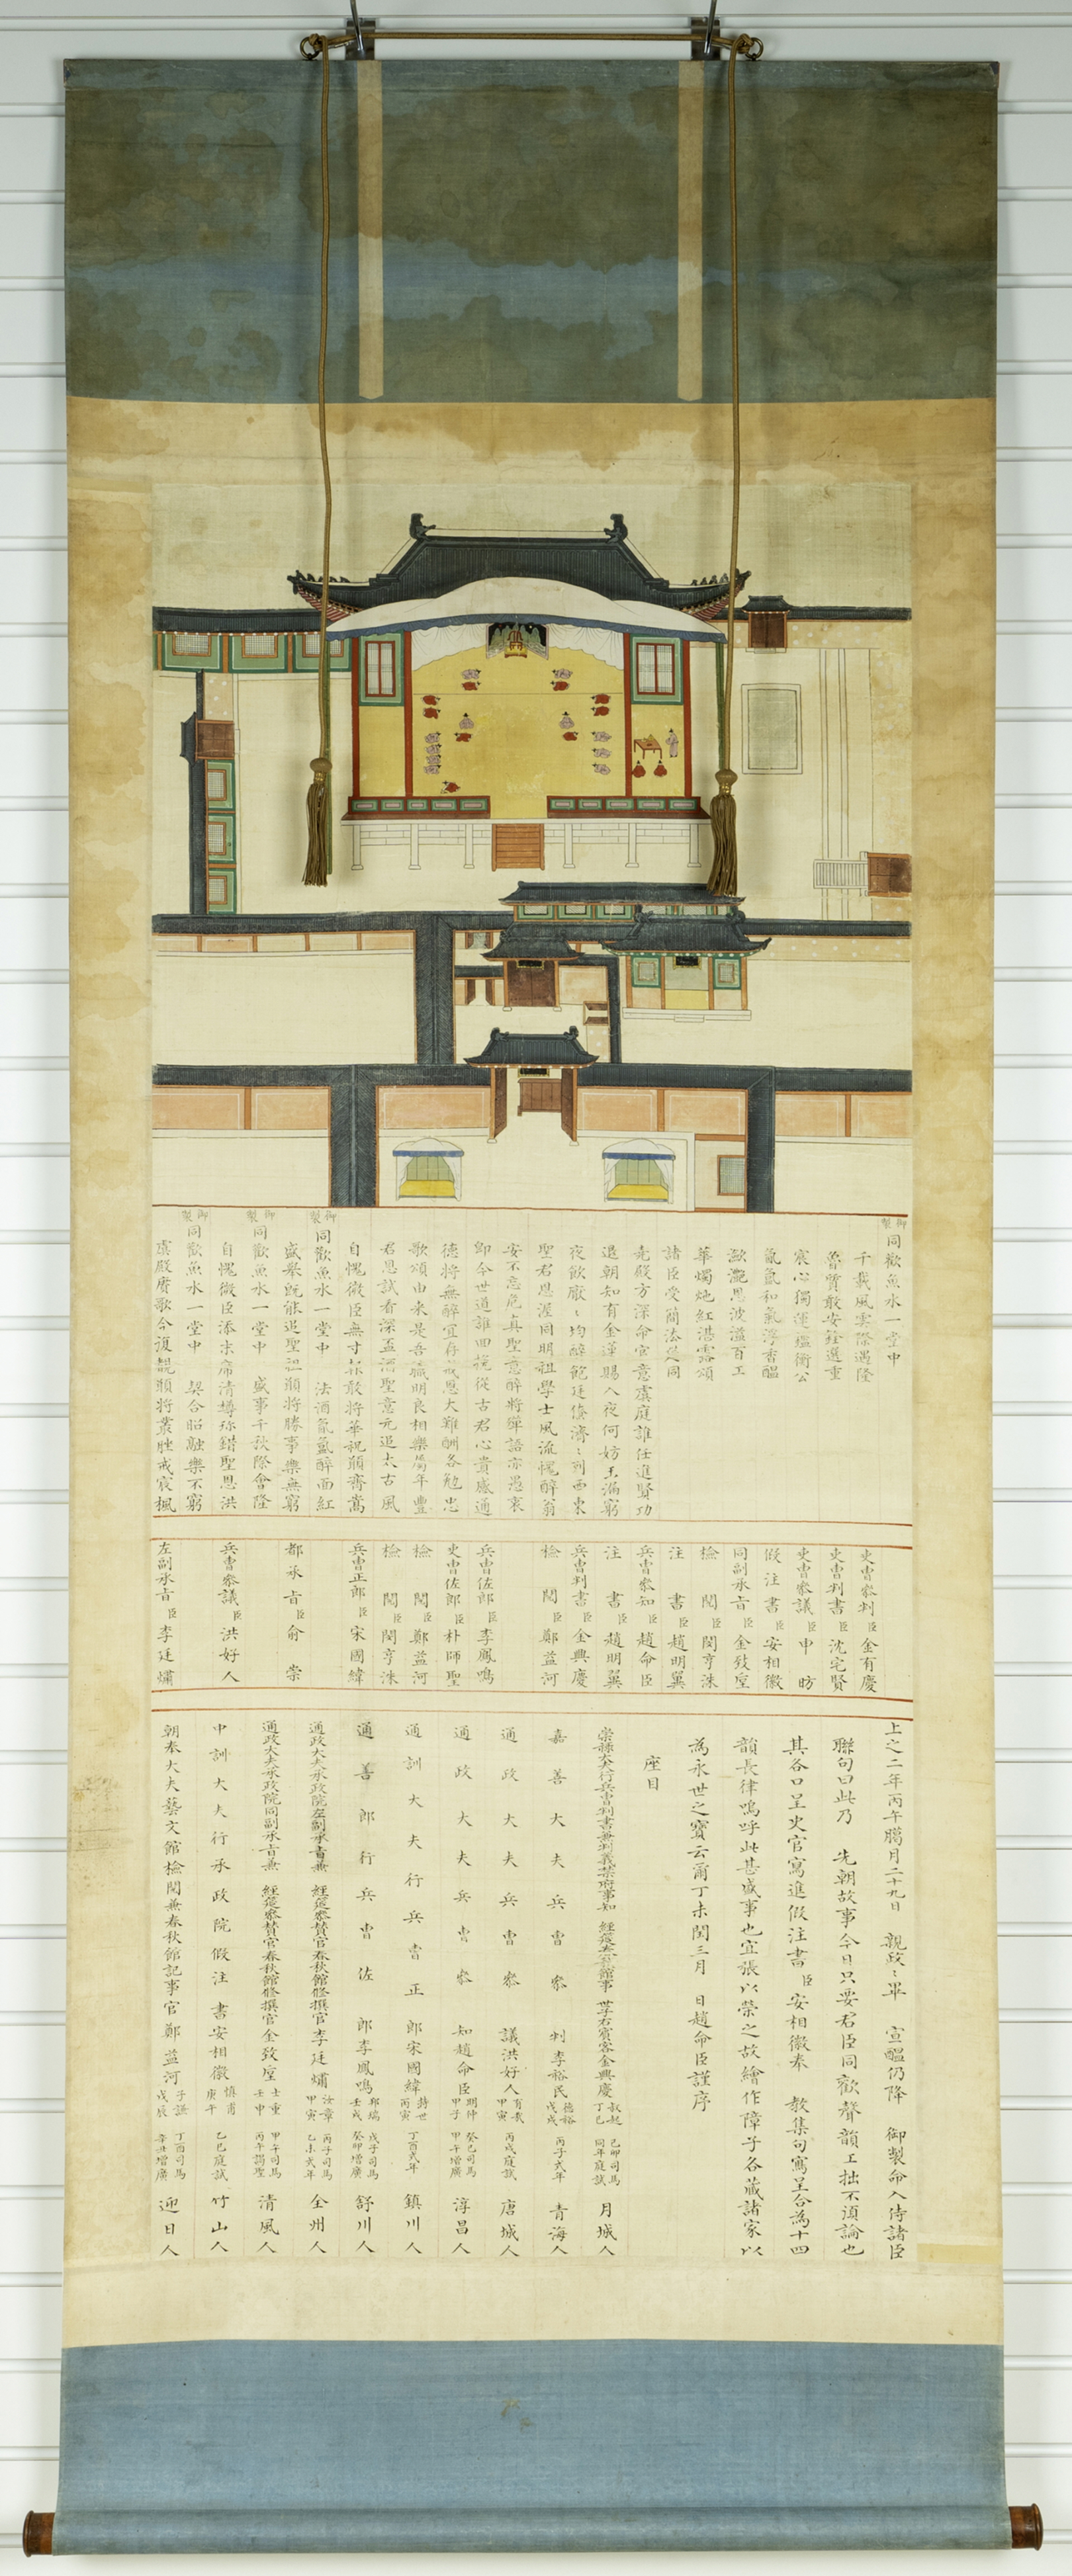 御製
同歡魚水一堂中
千載風雲際遇隆
魯質敢安銓選重
宸心獨運鑑衡公
氤氳和氣浮香醞
瀲灧恩波溢百工
華燭灺紅湛露頌
諸臣受簡法筵同
先殿方深命官意虞庭誰任進賢功
退朝知有金蓮賜入夜何妨玉漏窮
夜飮厭〻均醉飽廷儀濟〻列西東
聖君恩渥同明祖學士風流愧醉翁
安不忘危眞聖意醉將殫語亦愚衷
卽今世道誰回挽從古君心貴感通
德將無醉宜存戒恩大難酬各勉忠
歌頌由來是吾職明良相樂屬年豊
君恩試看深盃酒聖意元追太古風
自愧微臣無寸補敢將華祝願齊嵩
御製
同歡魚水一堂中 法酒氤氳醉面紅
盛擧旣能追聖祖願將勝事樂無窮
御製
同歡魚水一堂中 盛事千秋際會隆
自愧微臣添末席清樽珎錯聖恩洪
御製
同歡魚水一堂中 契合昭融樂不窮
虞殿賡歌今復覩願將叢脞戒宸楓
吏曹參判臣金有慶
吏曹判書臣沈宅賢
吏曹參議臣申昉
假注書臣安相徽
同副承旨臣金致垕
檢閱臣閔亨洙
注書臣趙明翼
兵曹參知臣趙命臣
注書臣趙明翼
兵曹判書臣金興慶
檢閱臣鄭益河
兵曹佐郎臣李鳳鳴
吏曹佐郎臣朴師聖
檢閱臣鄭益河
檢閱臣閔亨洙
兵曹正郎臣宋國緯
都承旨臣俞崇
兵曹參議臣洪好人
左副承旨臣李廷熽
上之二年丙午臈月二十九日 親政〻畢 宣醞仍降 御製命入侍諸臣
聯句曰此乃 先朝故事今日只要君臣同歡聲韻工拙不須論也
其各口呈史官寫進假注書臣安相徽奉 教集句寫呈合為十四
韻長律嗚呼此甚盛事也宜張以榮之故繪作障子各藏諸家以
為永世之寶云爾丁未閏三月 日趙命臣謹序
座目
崇祿大夫行兵曹判書兼判義禁府事知 經筵春秋館事 世子右賓客金興慶 叔起 丁巳 己卯司馬 同年庭試 月城人
嘉善大夫兵曹參判李裕民 德裕 戊戌 丙子式年 青海人
通政大夫兵曹參議洪好人 有哉 甲寅 丙戌庭試 唐城人
通政大夫兵曹參知趙命臣 明仲 甲子 癸巳司馬 甲午增廣 淳昌人
通訓大夫行兵曹正郎宋國緯 丙寅 丁酉式年 鎮川人
通善郎行兵曹佐郎李鳳鳴 壬戌 戊子司馬 癸卯增廣 舒川人
通政大夫承政院左副承旨兼 經筵參贊官春秋館修撰官李廷熽 汝章 甲寅 丙子司馬 乙未式年 全州人
通政大夫承政院同副承旨兼 經筵參贊官春秋館修撰官金致垕 士重 壬申 甲午司馬 丙午謁聖 清風人
中訓大夫行承政院假注書安相徽 慎甫 庚午 乙巳庭試 竹山人
朝奉大夫藝文館檢閱兼春秋館記事官鄭益河 子謙 戊辰 丁酉司馬 辛丑增廣 迎日人